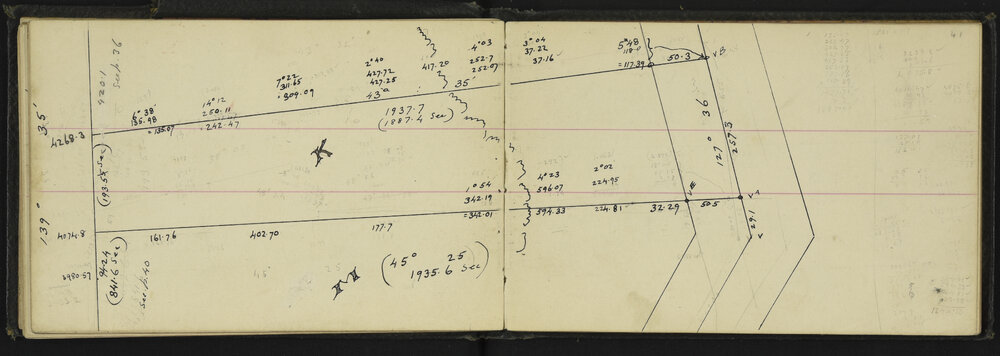 920.1
See p. 36
4268.3
35'
139°
4074.8
3980.57
94.24
(841.6 Sec)
See p. 40
6° 38'
135.98
= 135.07
14° 12
250.11
= 242.47
7° 22
311.65
= 309.09
2° 40
427.72
427.25
43°
417.20
35'
4° 03
252.7
252.07
1937.7
(1887.4 Sec)
K
1° 54
342.19
= 342.01
161.76
402.70
177.7
M
(45° 25
1935.6 Sec)
3° 04
37.22
37.16
5° 48
= 117.39
50.3
VB
127° 36
257.3
4° 23
596.07
594.33
2° 02
224.95
224.81
32.29
50.5
29.1
41